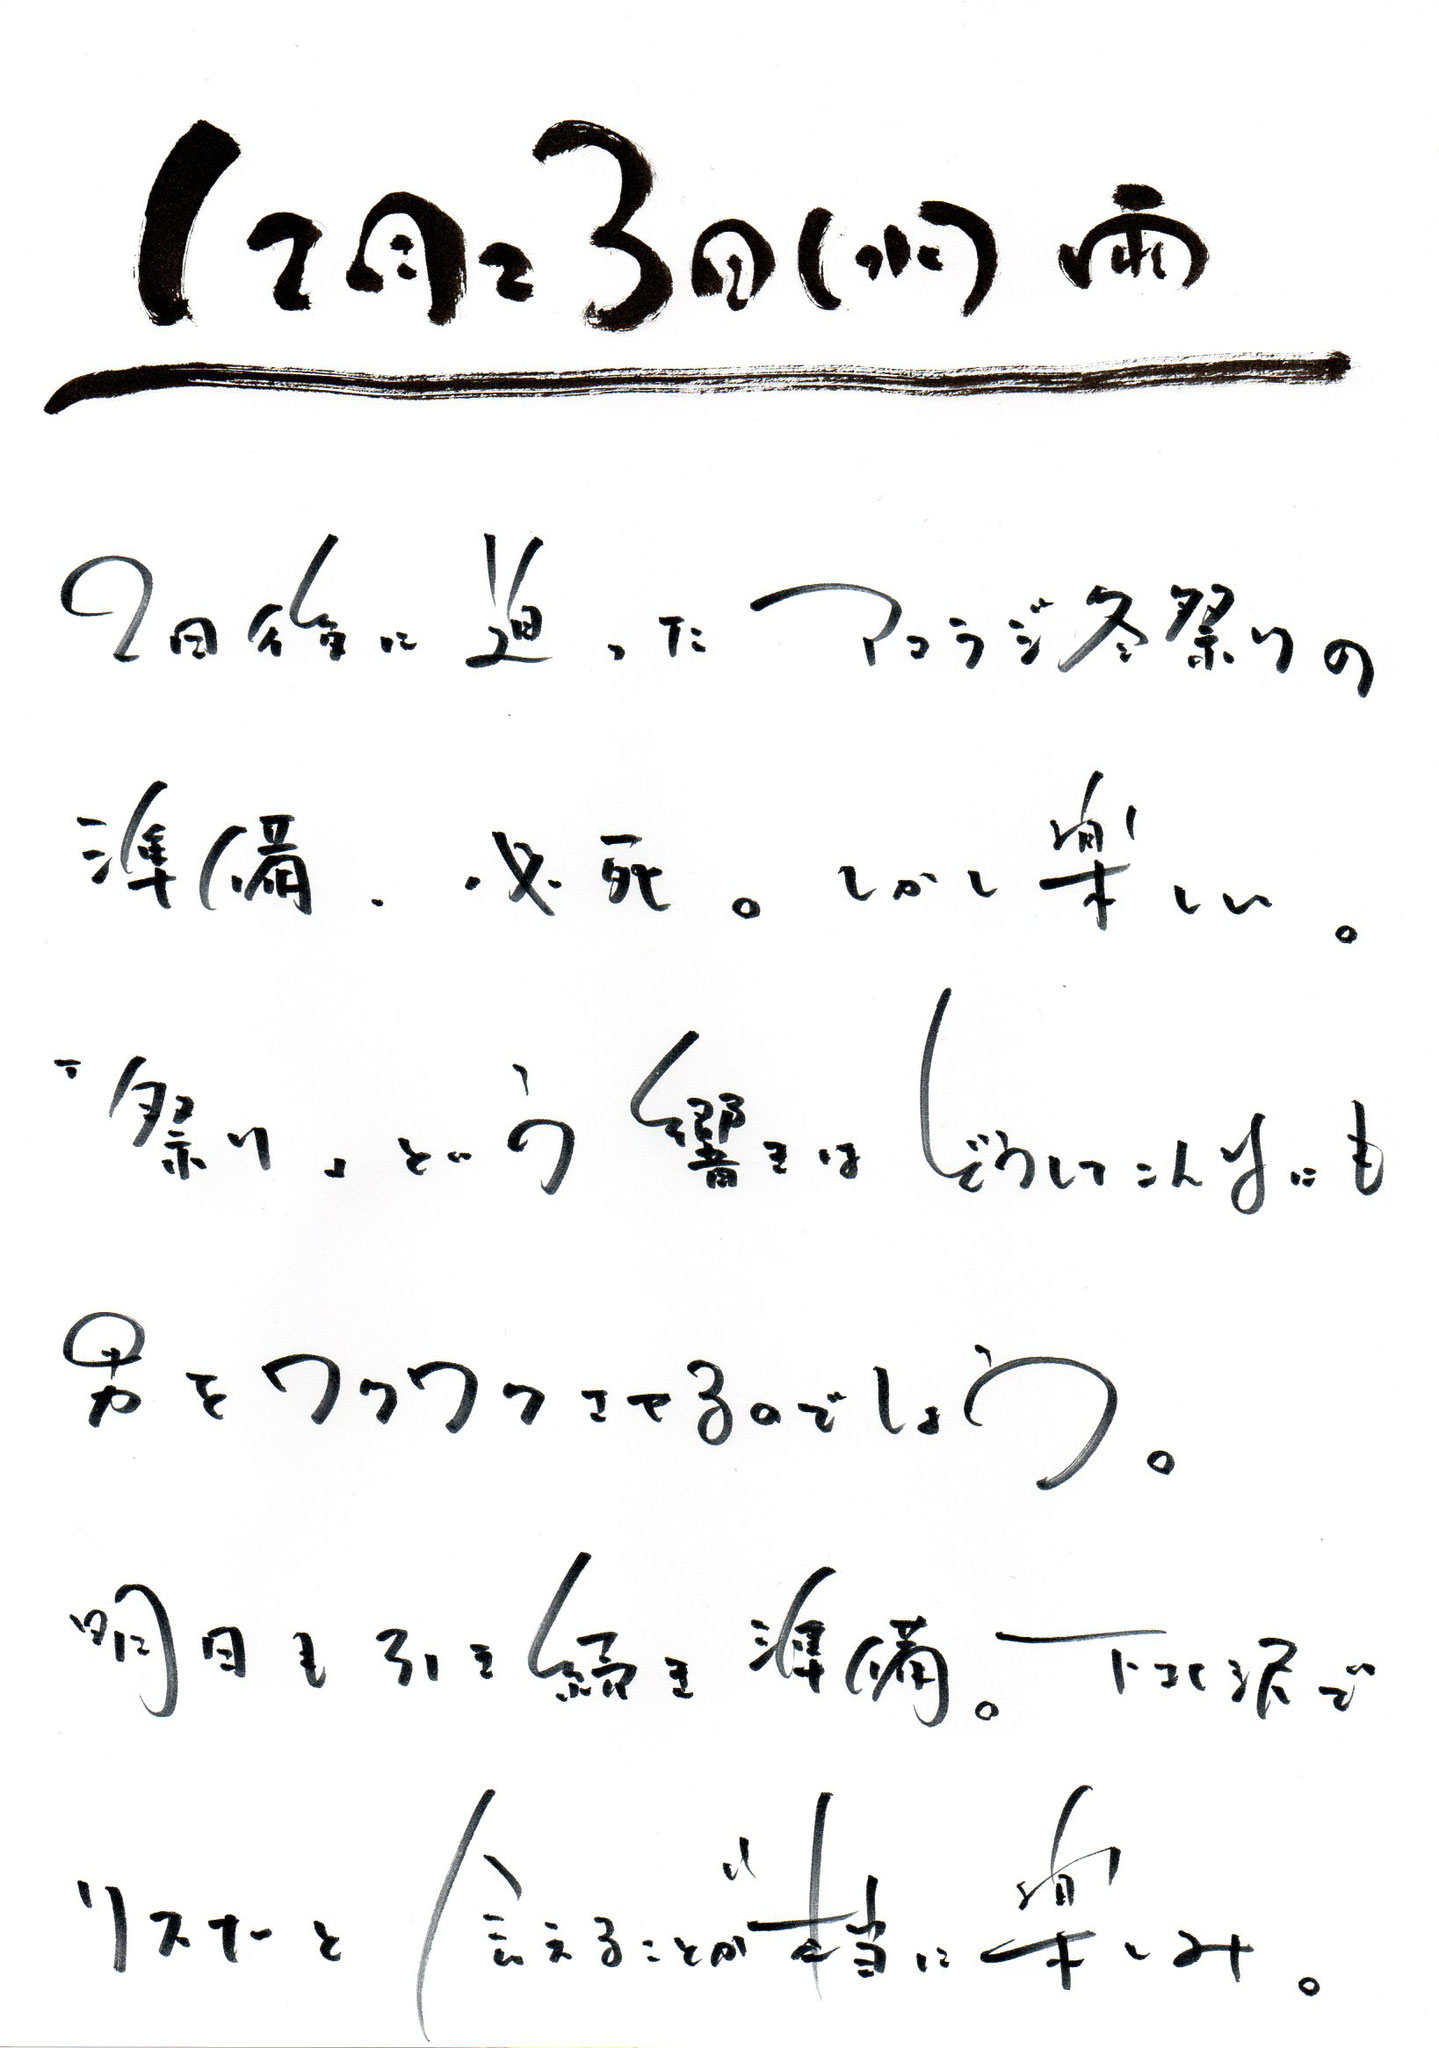 12月23日(水)雨
2日後に迫ったアコラジ冬祭りの
準備、必死。しかし楽しい。
「祭り」という響きはどうしてこんなにも
男をワクワクさせるのでしょう。
明日も引き続き準備。下北沢で
リスナーと会えることが本当に楽しみ。